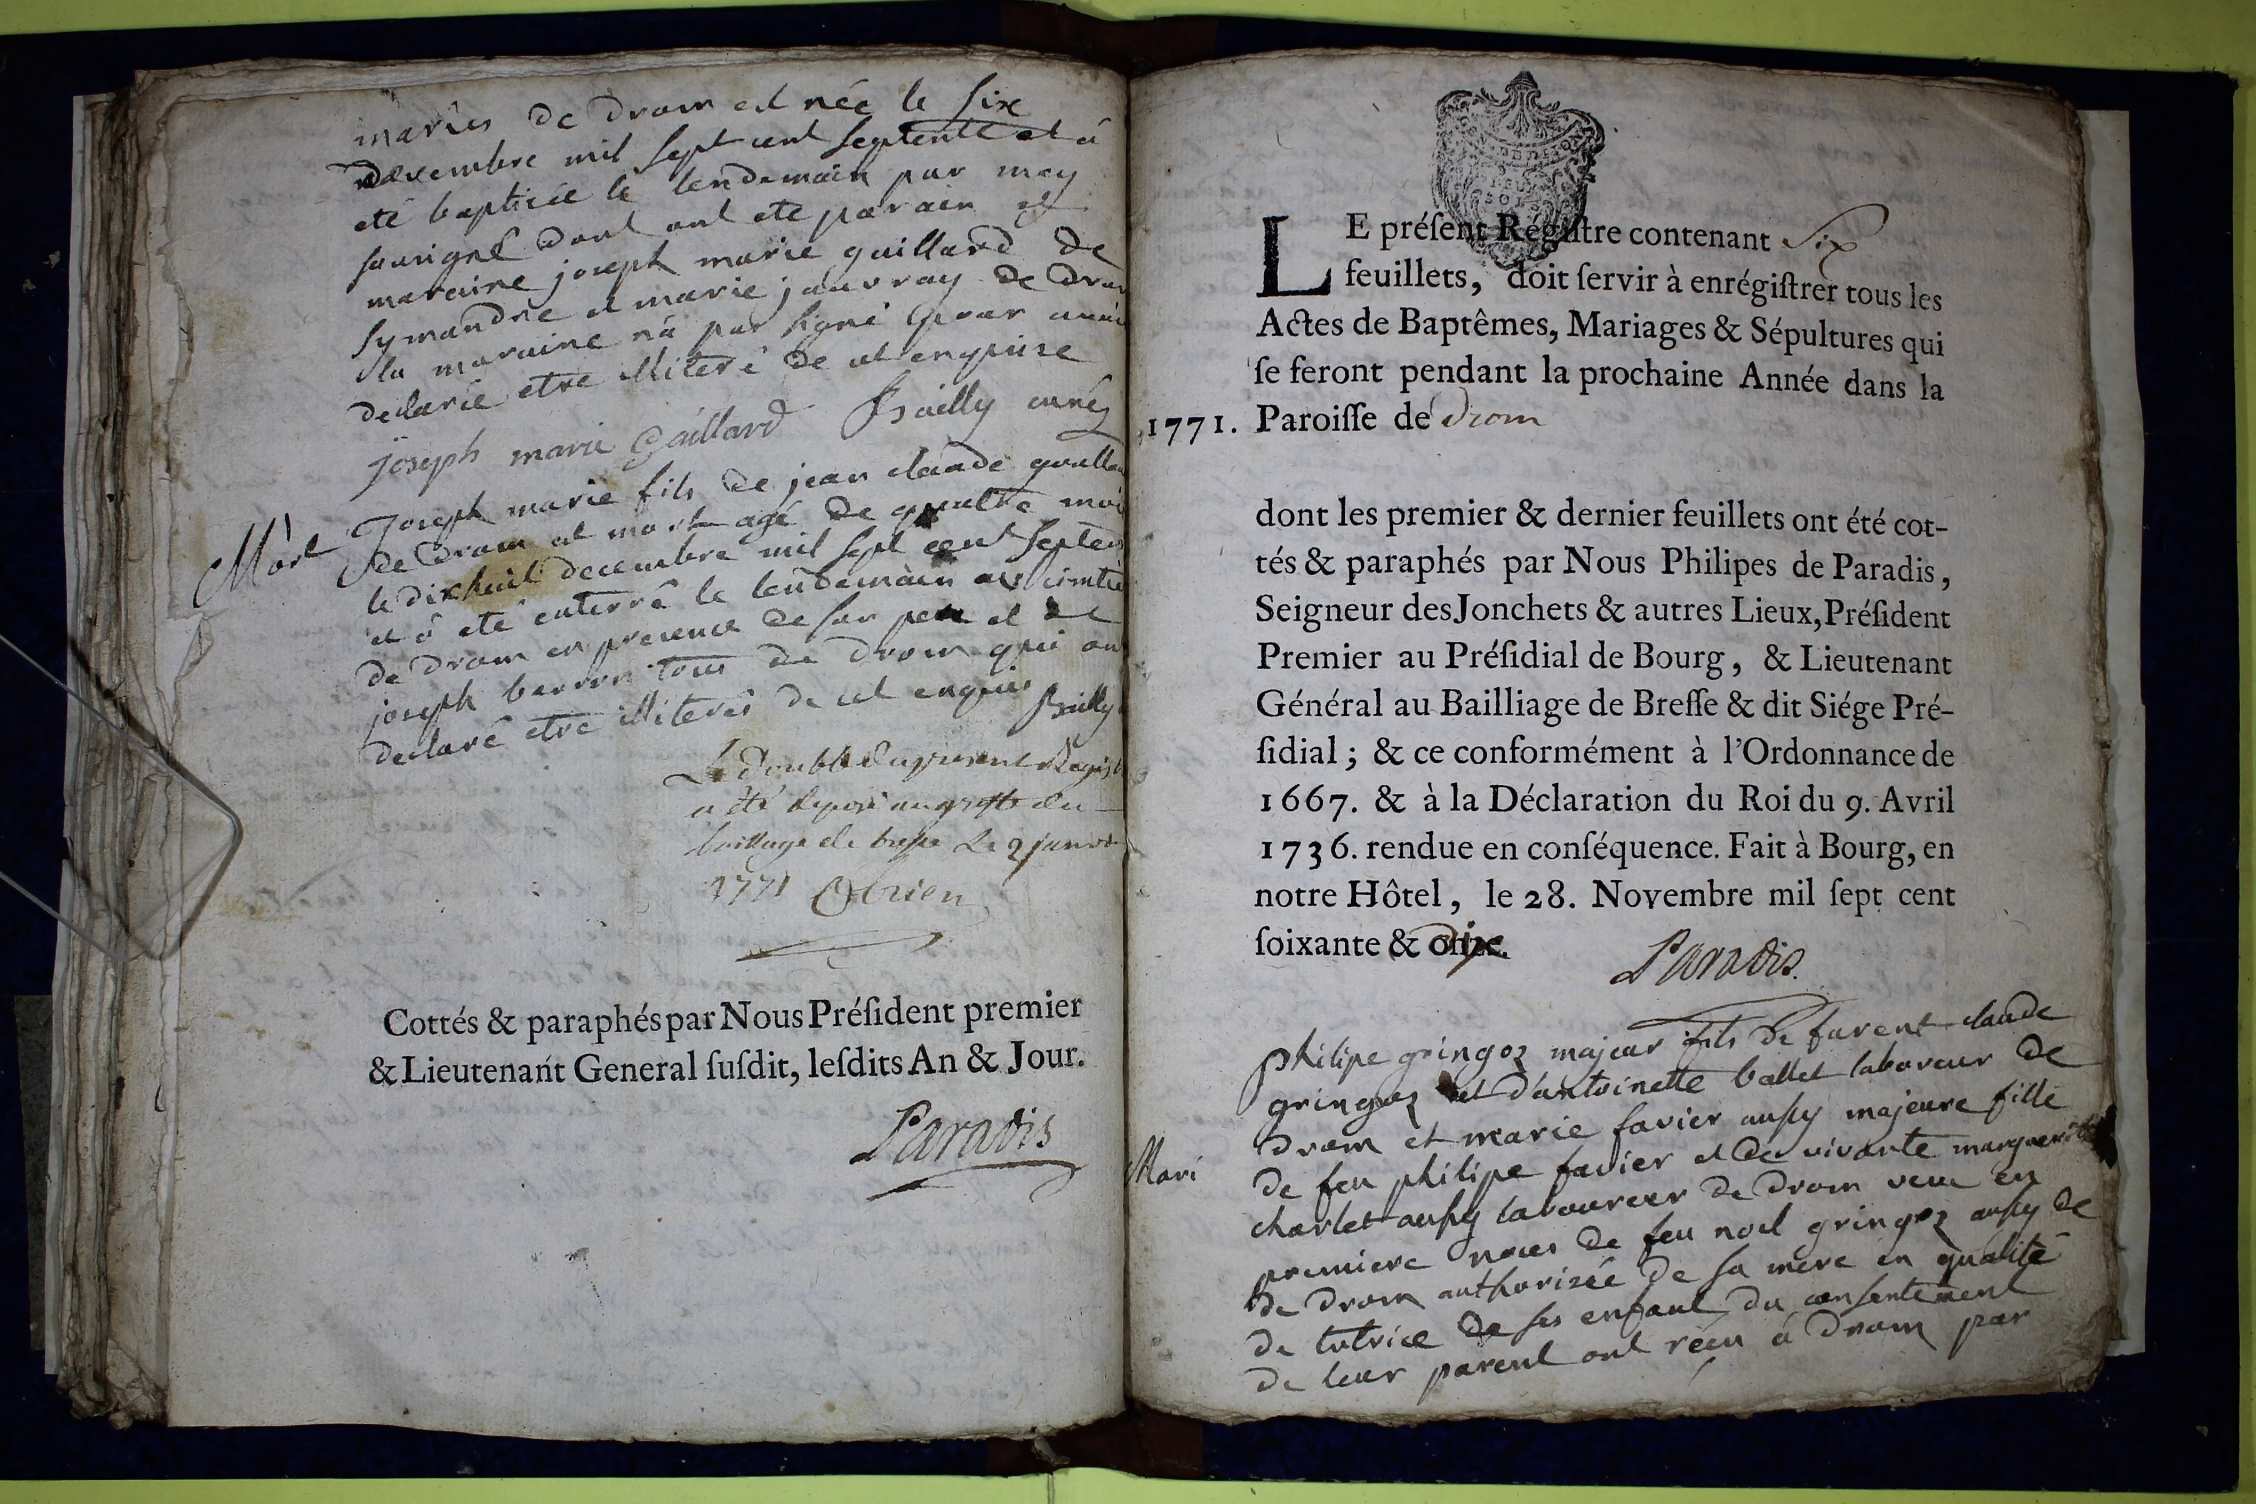 mariés de drom est née le six
decembre mil sept cent septente et à
eté baptisée le lendemain par moy
sousigné dont ont eté parain et
maraine joseph marie gaillard de
symandre et marie jauvray de drom
la maraine n'a pas signé pour avoir
declarée etre illiteré de ce enquise
joseph marie Gaillard Bailly curéz
Mort
Joseph marie fils de jean claude
de drom est mort agé de quattre mois
le dix huit decembre mil sept cent septente
et à eté enterré le lendemain au cimtiere
de drom en presence de son pere et de
joseph tous de drom qui ont
declaré etre illiterés de ce enquis Bailly
Le double du present Regist
a été deposé au greffe du
bailliage de bresse Le 2 janvr
1771
Cottés & paraphés par Nous Préſident premier
& Lieutenant General ſuſdit, leſdits An & Jour.
Paradis
LE préſent Régiſtre contenant Six
feuillets, doit ſervir à enrégiſtrer tous les
Actes de Baptêmes, Mariages & Sépultures qui
ſe feront pendant la prochaine Année dans la
1771. Paroiſſe de drom
dont les premier & dernier feuillets ont été cot-
tés & paraphés par Nous Philipes de Paradis,
Seigneur des Jonchets & autres Lieux, Préſident
Premier au Préſidial de Bourg, & Lieutenant
Général au Bailliage de Breſſe & dit Siége Pré-
ſidial; & ce conformément à l'Ordonnance de
1667. & à la Déclaration du Roi du 9. Avril
1736. rendue en conſéquence. Fait à Bourg, en
notre Hôtel, le 28. Novembre mil ſept cent
ſoixante & dix.
Paradis.
philipe gringoz majeur fils de furent claude
gringoz et d'antoinette ballet laboreur de
drom et marie favier aussy majeure fille
Mari
de feu philipe favier et de vivante marguerite
charlet aussy laboureur de drom veuve en
premiere noces de feu noel gringoz aussy de
de drom authorizée de sa mere en qualité
de tutrice de ses enfant du consentement
de leur parent ont reçu à drom par